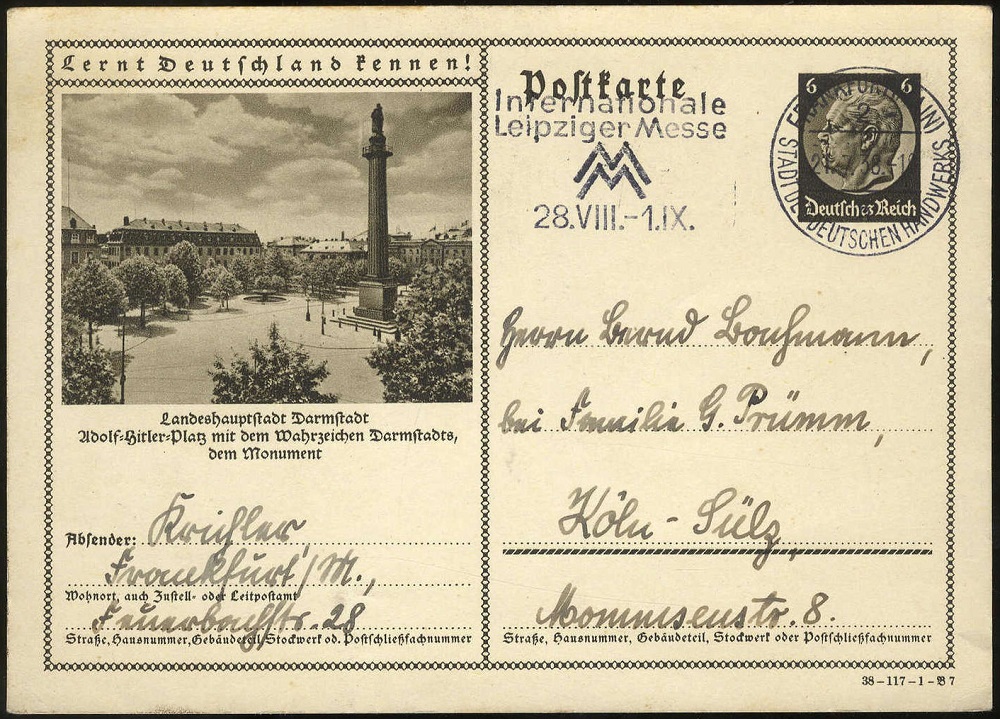 Lernt Deutschland kennen!
Landeshauptstadt Darmstadt
Adolf-Hitler-Platz mit dem Wahrzeichen Darmstadts,
dem Monument
Absender: Krichler,
Frankfurt/M.,
Wohnort, auch Zustell- oder Leitpostamt
Feuerbachstr. 28
Straße, Hausnummer, Gebäudeteil, Stockwerk od. Postschließfachnummer
Postkarte
Internationale
Leipziger Messe
MM
28.VIII.-1.IX.
6 6
Deutsches Reich
FRANKFURT (MAIN)
STADT DES DEUTSCHEN HANDWERKS
Herrn Bernd Bachmann,
bei Familie G. Prümm,
Köln-Sülz,
Mommsenstr. 8.
Straße, Hausnummer, Gebäudeteil, Stockwerk oder Postschließfachnummer
38-117-1-B7